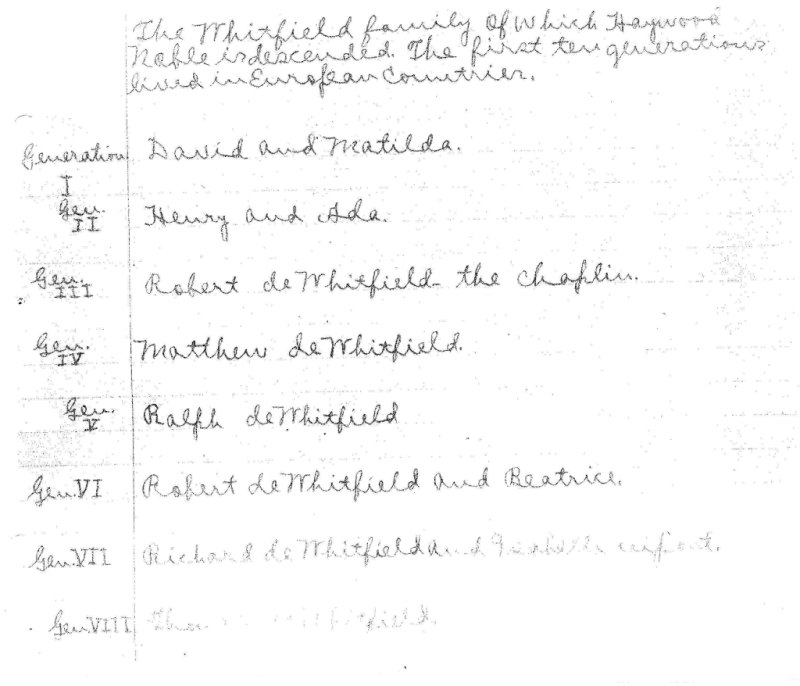 The Whitfield family Of which Haywood
Noble is descended. The first ten generations
lived in European Countries.
Generation I David and Matilda.
Gen. II Henry and Ada.
Gen. III Robert de Whitfield - the chaplin.
Gen. IV Matthew de Whitfield.
Gen. V Ralph de Whitfield
Gen. VI Robert de Whitfield and Beatrice.
Gen. VII Richard de Whitfield and
Gen. VIII